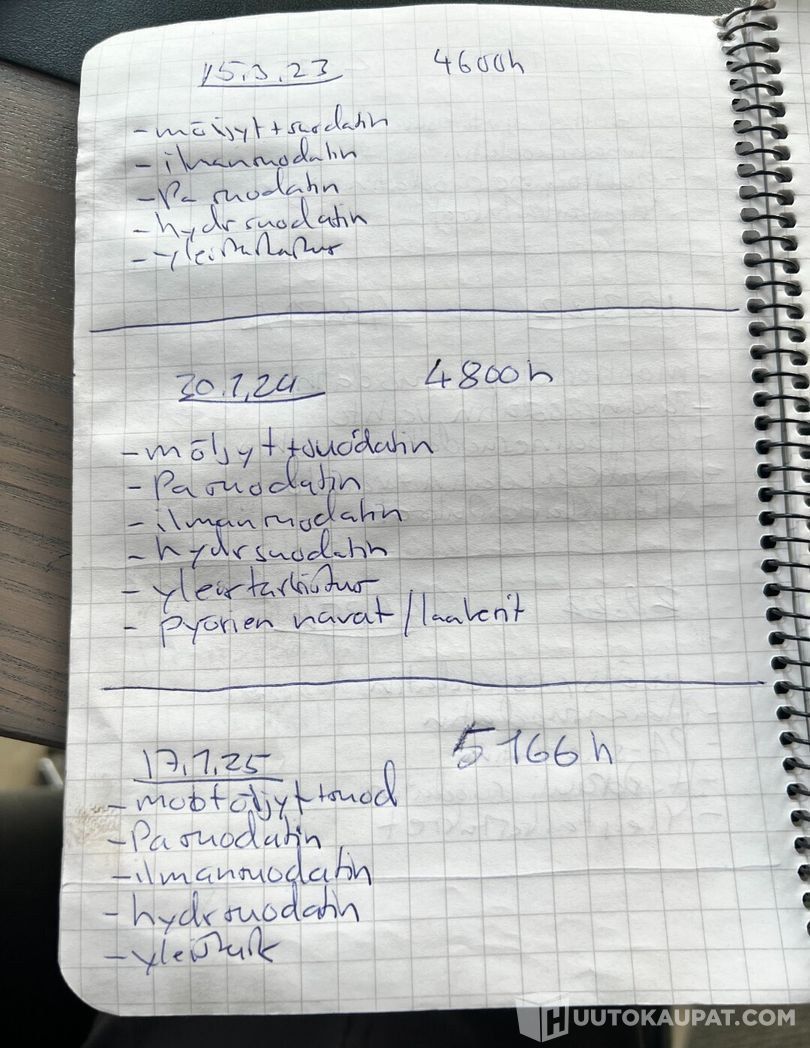 15.3.23 4600h
- möljyt + suodatin
- ilmansuodatin
- Pa suodatin
- hydr suodatin
- yleistarkastus
30.1.24 4800h
- möljyt + suodatin
- Pa suodatin
- ilmansuodatin
- hydr suodatin
- yleistarkastus
- pyörien navat / laakerit
17.1.25 5166h
- mootöljyt + suod
- Pa suodatin
- ilmansuodatin
- hydr suodatin
- yleistark
HUUTOKAUPAT.COM